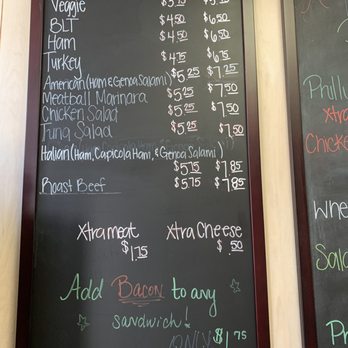 Veggie
BLT $4.50 $6.50
Ham $4.50 $6.50
Turkey $4.75 $6.75
American (Ham & Genoa Salami) $5.25 $7.25
Meatball Marinara $5.25 $7.50
Chicken Salad $5.25 $7.50
Tuna Salad $5.25 $7.50
Italian (Ham, Capicola Ham, & Genoa Salami)
$5.75 $7.85
Roast Beef $5.75 $7.85
Xtra meat Xtra Cheese
$1.75 $.50
Add Bacon to any
sandwich!
ONLY $1.75
Philly
Xtra
Chicke
Whe
Sala
Pr